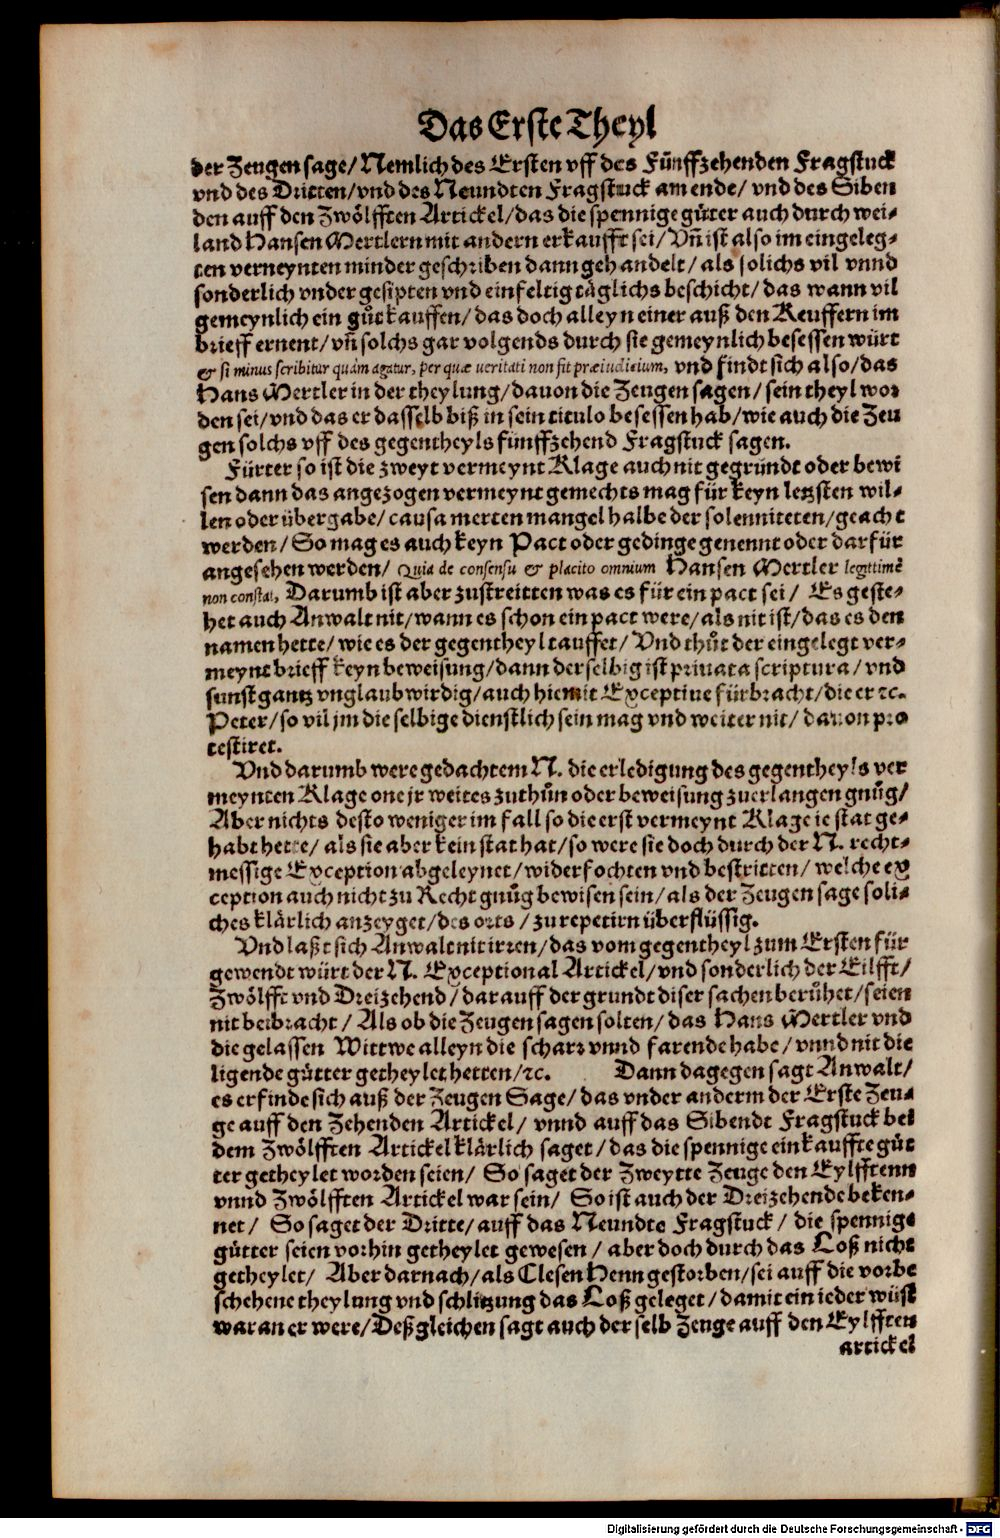 Das Erste Theyl
der Zeugen sage/ Nemlich des Ersten vff des Fünffzehenden Fragstuck
vnd des Dritten/ vnd des Neundten Fragstuck am ende/ vnd des Siben
den auff den Zwölfften Artickel/ das die spennige gůter auch durch wei-
land Hansen Mertlern mit andern erkaufft sei/ Vñ ist also im eingeleg-
ten verneynten minder geschriben dann gehandelt/ als solichs vil vnnd
sonderlich vnder gesipten vnd einfeltig täglichs beschicht/ das wann vil
gemeynlich ein gůt kauffen/ das doch alleyn einer auß den Keuffern im
brieff ernent/ vñ solchs gar volgends durch sie gemeynlich besessen würt
& si minus scribitur quàm agatur, per quæ ueritati non fit præiudicium, vnd findt sich also/ das
Hans Mertler in der theylung/ dauon die Zeugen sagen/ sein theyl wor
den sei/ vnd das er dasselb biß in sein titulo besessen hab/ wie auch die Zeu
gen solchs vff des gegentheyls fünffzehend Fragstuck sagen.
Fürter so ist die zweyt vermeynt Klage auch nit gegründt oder bewi
sen dann das angezogen vermeynt gemechts mag für keyn letzsten wil-
len oder übergabe/ causa merten mangel halbe der solenniteten/ geacht
werden/ So mag es auch keyn Pact oder gedinge genennt oder darfür
angesehen werden/ Quia de consensu & placito omnium Hansen Mertler legittimè
non constat, Darumb ist aber zustreitten was es für ein pact sei/ Es geste-
het auch Anwalt nit/ wann es schon ein pact were/ als nit ist/ das es den
namen hette/ wie es der gegentheyl tauffet/ Vnd thůt der eingelegt ver-
meynt brieff keyn beweisung/ dann derselbig ist priuata scriptura/ vnd
sunst gantz vnglaubwirdig/ auch hiemit Exceptiue fürbracht/ die er ꝛc.
Peter/ so vil jm die selbige dienstlich sein mag vnd weiter nit/ dauon pro
testiret.
Vnd darumb were gedachtem N. die erledigung des gegentheyls ver
meynten Klage one jr weites zuthůn oder beweisung zuerlangen gnůg/
Aber nichts desto weniger im fall so die erst vermeynt Klage ie stat ge-
habt hette/ als sie aber kein stat hat/ so were sie doch durch der N. recht-
messige Exception abgeleynet/ widerfochten vnd bestritten/ welche ex
ception auch nicht zu Recht gnůg bewisen sein/ als der Zeugen sage soli-
ches klärlich anzeyget/ des orts/ zu repetirn überflüssig.
Vnd laßt sich Anwalt nit irren/ das vom gegentheyl zum Ersten für
gewendt würt der N. Exceptional Artickel/ vnd sonderlich der Eilfft/
Zwölfft vnd Dreizehend/ darauff der grundt diser sachen berůhet/ seien
nit beibracht/ Als ob die Zeugen sagen solten/ das Hans Mertler vnd
die gelassen Wittwe alleyn die scharz vnnd farende habe/ vnnd nit die
ligende gůtter getheylet hetten/ ꝛc. Dann dagegen sagt Anwalt/
es erfinde sich auß der Zeugen Sage/ das vnder anderm der Erste Zeu-
ge auff den Zehenden Artickel/ vnnd auff das Sibendt Fragstuck bei
dem Zwölfften Artickel klärlich saget/ das die spennige einkauffte gůt
ter getheylet worden seien/ So saget der Zweytte Zeuge den Eylfftenn
vnnd Zwölfften Artickel war sein/ So ist auch der Dreizehende beken-
net/ So saget der Dritte/ auff das Neundte Fragstuck/ die spennige
gůtter seien vorhin getheylet gewesen/ aber doch durch das Loß nicht
getheylet/ Aber darnach/ als Clesen Henn gestorben/ sei auff die vorbe
schehene theylung vnd schlitzung das Loß geleget/ damit ein ieder wüst
waran er were/ Deßgleichen sagt auch der selb Zeuge auff den Eylfften
artickel
Digitalisierung gefördert durch die Deutsche Forschungsgemeinschaft - DFG